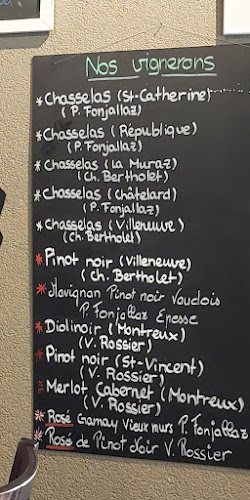 Nos vignerons
* Chasselas (St-Catherine)
(P. Fonjallaz)
* Chasselas (République)
(P. Fonjallaz)
* Chasselas (La Muraz)
(Ch. Bertholet)
* Chasselas (Châtelard)
(P. Fonjallaz)
* Chasselas (Villeneuve)
(Ch. Bertholet)
* Pinot noir (Villeneuve)
(Ch. Bertholet)
* Pinot noir Vaudois
P. Fonjallaz Epesse
* Diolinoir (Montreux)
(V. Rossier)
* Pinot noir (St-Vincent)
(V. Rossier)
* Merlot Cabernet (Montreux)
(V. Rossier)
* Rosé Gamay Vieux murs P. Fonjallaz
* Rosé de Pinot Noir V. Rossier